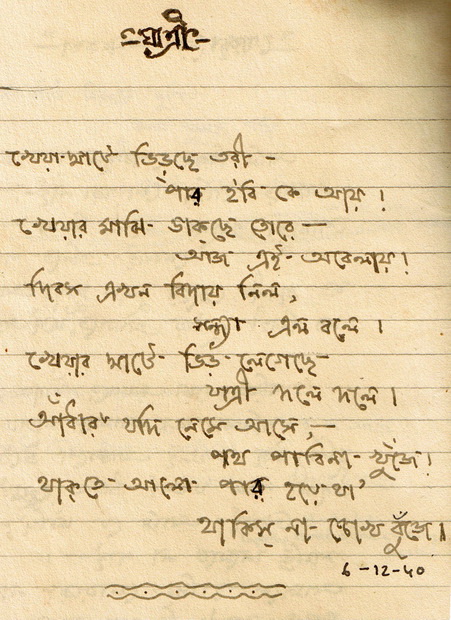 -যাত্রী-
খেয়া-ঘাটে ভিড়ছে তরী -
পার হবি কে আয় !
খেয়ার মাঝি ডাকছে তোরে —
আজ এই অবেলায় !
দিবস এখন বিদায় নিল,
সন্ধ্যা এল বলে ।
খেয়ার ঘাটে ভিড় লেগেছে-
যাত্রী দলে দলে ।
আঁধার যদি নেমে আসে, —
পথ পাবিনা খুঁজে !
থাক্‌তে আলো পার হয়ে যা'
থাকিস্ না চোখ বুঁজে ॥
৬-12-40